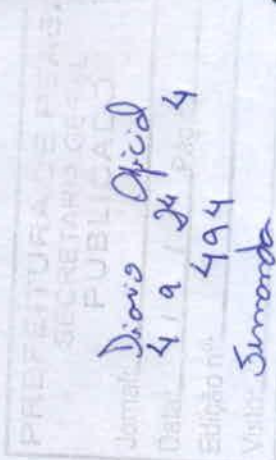 PREFEITURA DE PENO
SECRETARIA GERAL
PUBLICADO
Jornal: Diario Oficial
Data: 4 / 9 / 24 Pág. 4
Edição nº 494
Visto: Fernanda